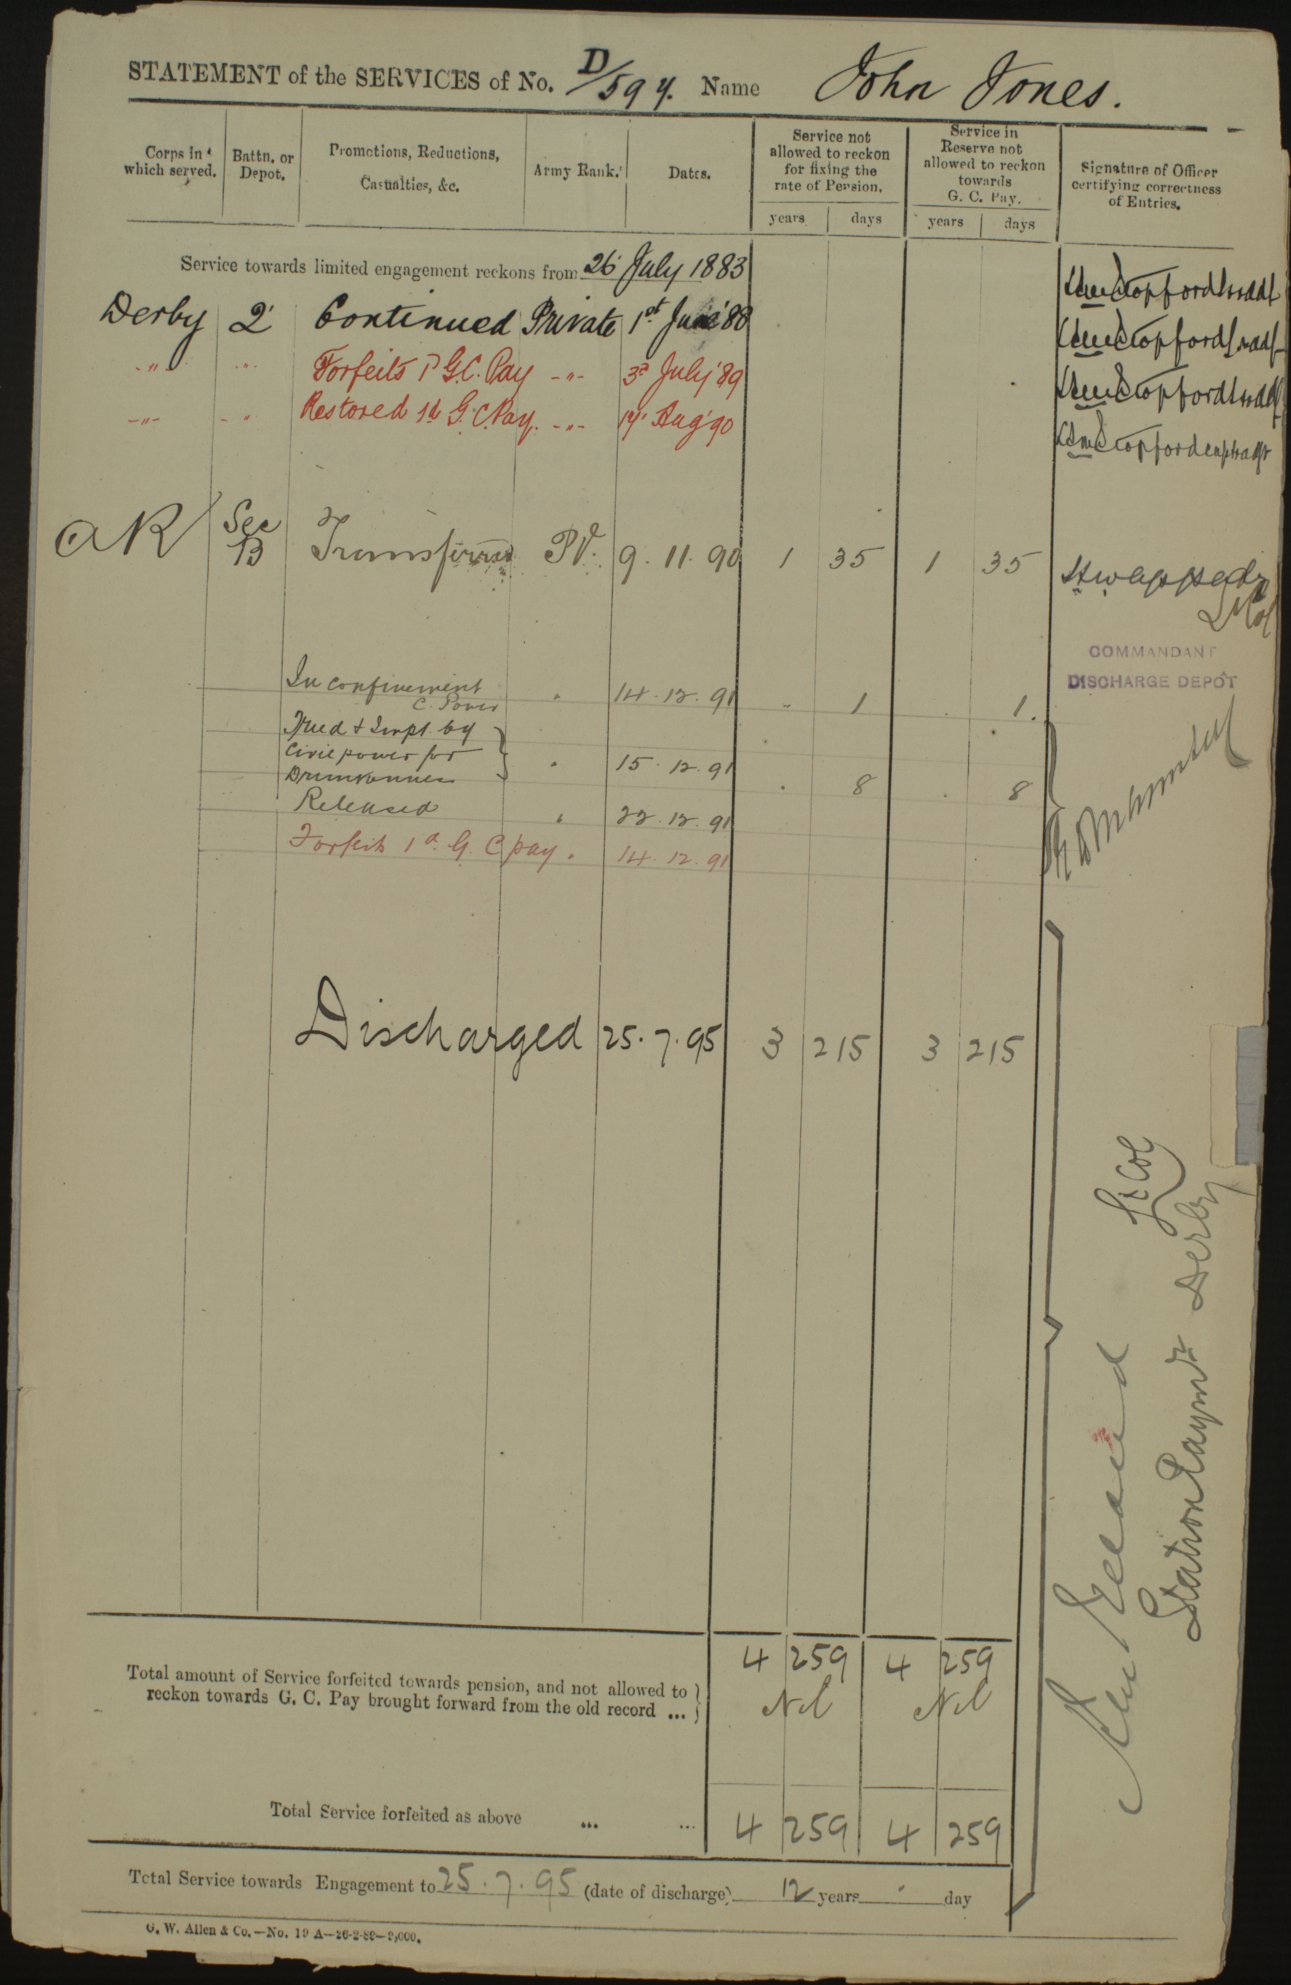 STATEMENT of the SERVICES of No. D/594. Name John Jones.
Corps in which served.
Battn. or Depot.
Promotions, Reductions, Casualties, &c.
Army Rank.
Dates.
Service not allowed to reckon for fixing the rate of Pension.
years days
Service in Reserve not allowed to reckon towards G. C. Pay.
years days
Signature of Officer certifying correctness of Entries.
Service towards limited engagement reckons from 26 July 1883
Derby 2 Continued Private 1st June '88
-"- -"- Forfeits 1d G.C. Pay -"- 3d July '89
-"- -"- Restored 1d G.C. Pay. -"- 14 Aug '90
AR Sec B Transferred Pt. 9.11.90 1 35 1 35
COMMANDANT
DISCHARGE DEPÔT
In confinement C. Power " 14.12.91 " 1 . 1.
Tried & Impt. by
Civil power for
Drunkenness } " 15.12.91 . 8 . 8
Released " 22.12.91
Forfeits 1d G. C pay. 14.12.91
Discharged 25.7.95 3 215 3 215
Lt Col
Station Paymr Derby
4 259 4 259
Total amount of Service forfeited towards pension, and not allowed to
reckon towards G. C. Pay brought forward from the old record ... } Nil Nil
Total Service forfeited as above ... ... 4 259 4 259
Total Service towards Engagement to 25.7.95 (date of discharge) 12 years " day
G. W. Allen & Co.—No. 19 A—26-2-89—9,000.